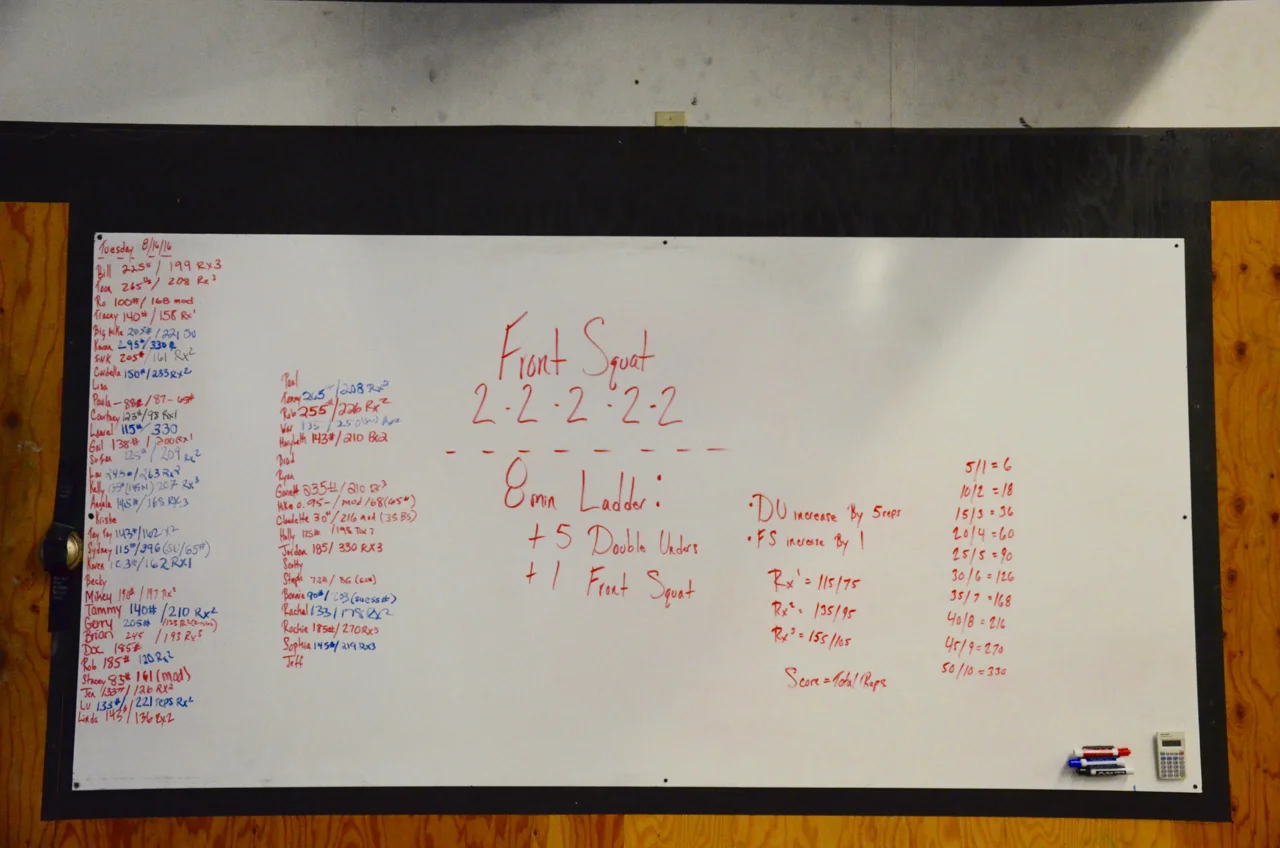 Tuesday 8/16/16
Bill 225# / 199 Rx3
265 / 208 Rx3
Ro 100# / 168 mod
Tracey 140# / 158 Rx1
Big Mike 205# / 221
Karen 295# / 330
205# / 161 Rx2
150# / 233 Rx2
Lisa
Paula - 88# / 87 - 65#
Courtney 123# / 98 Rx1
Laurel 115# / 330
Gail 138# / 200 Rx1
Susan 125# / 209 Rx2
Lou 245# / 263 Rx2
Kelly 207 Rx3
Angela 145# / 165 Rx3
Krishe
Tay Tay 143# / 162 Rx2
Sydney 115# / 296 (SU/65#)
Karen 103# / 162 Rx1
Becky
Mikey 190# / 197 Rx2
Tammy 140# / 210 Rx2
Gerry 205# /
Brian 245 / 193 Rx3
Doc 185#
Rob 185# 120 Rx2
Stacey 83# 161 (mod)
Jen 133# / 126 Rx2
Lu 133# / 221 reps Rx2
Linda 143# / 136 Rx2
Paul
Tommy 265 / 208 Rx3
Rob 255# / 226 Rx2
135 / 250
Marybeth 143# / 210
Brad
Ryan
Garrett 235# / 210 Rx3
Mike O. 95 - / mod / 68 (65#)
Claudette 30# / 216 mod (35 BS)
Holly 125# / 198
Jordan 185 / 330 RX3
Scotty
Steph 72# / 86
Bonnie 90# /
Rachel 133 / 178 Rx2
Rachie 185# / 270 Rx3
Sophia 145# / 219 Rx3
Jeff
Front Squat
2 · 2 · 2 · 2 · 2
- - - - - - - -
8 min Ladder:
+ 5 Double Unders
+ 1 Front Squat
· DU increase By 5 reps
· FS increase By 1
Rx1 = 115/75
Rx2 = 135/95
Rx3 = 155/105
Score = Total Reps
5/1 = 6
10/2 = 18
15/3 = 36
20/4 = 60
25/5 = 90
30/6 = 126
35/7 = 168
40/8 = 216
45/9 = 270
50/10 = 330